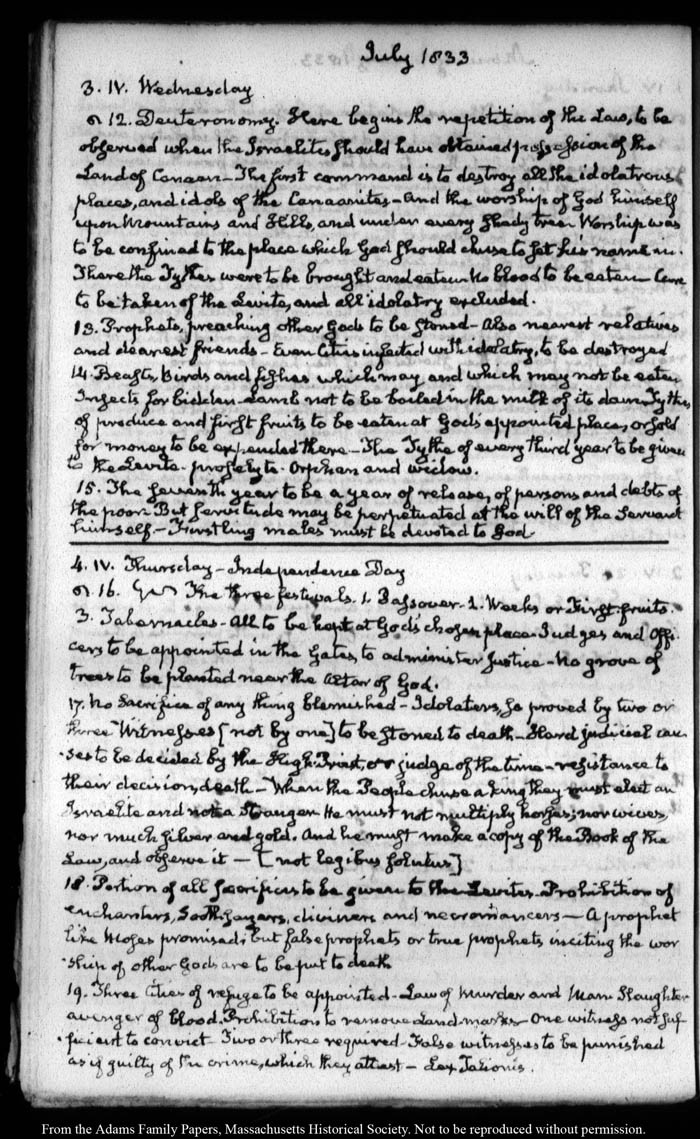 July 1833
3. IV. Wednesday
12. Deuteronomy. Here begins the repetition of the Law, to be
observed when the Israelites should have obtained possession of the
Land of Canaan – The first command is to destroy all the idolatrous
places, and idols of the Canaanites – And the worship of God himself
upon Mountains and Hills, and under every shady tree. Worship was
to be confined to the place which God should chuse to set his name in.
There the Tythes were to be brought and eaten No blood to be eaten – Care
to be taken of the Levite, and all idolatry excluded.
13. Prophets, preaching other Gods to be stoned – Also nearest relatives
and dearest friends – Even Cities infected with idolatry, to be destroyed
14. Beasts, birds and fishes which may and which may not be eaten
Insects forbidden. Lamb not to be boiled in the milk of its dam. Tythes
of produce and first fruits to be eaten at God's appointed place, or sold
for money to be expended there – The Tythe of every third year to be given
to the Levite – proselyte – Orphan and widow.
15. The seventh year to be a year of release, of persons and debts of
the poor. But servitude may be perpetuated at the will of the Servant
himself – Firstling males must be devoted to God
4. IV. Thursday – Independence Day
16. The three festivals. 1. Passover. 2. Weeks or First fruits.
3. Tabernacles – All to be kept at God's chosen place. Judges and Offi-
cers to be appointed in the Gates, to administer Justice – No grove of
trees to be planted near the Altar of God.
17. No Sacrifice of any thing blemished – Idolaters, so proved by two or
three Witnesses [not by one] to be stoned to death – Hard judicial cau-
ses to be decided by the High Priest, or judge of the time – resistance to
their decision, death – When the People chuse a king they must elect an
Israelite and not a Stranger. He must not multiply horses; nor wives,
nor much silver and gold. And he must make a copy of the Book of the
Law, and observe it – [not legibus solutus]
18. Portion of all sacrifices to be given to the Levites. Prohibition of
enchanters, Soothsayers, diviners and necromancers – A prophet
like Moses promised; but false prophets or true prophets inciting the wor-
ship of other Gods are to be put to death
19. Three Cities of refuge to be appointed – Law of Murder and Man Slaughter
avenger of blood. Prohibition to remove Land-marks – One witness not suf-
ficient to convict Two or three required – False witnesses to be punished
as if guilty of the crime, which they attest – Lex Talionis.
From the Adams Family Papers, Massachusetts Historical Society. Not to be reproduced without permission.